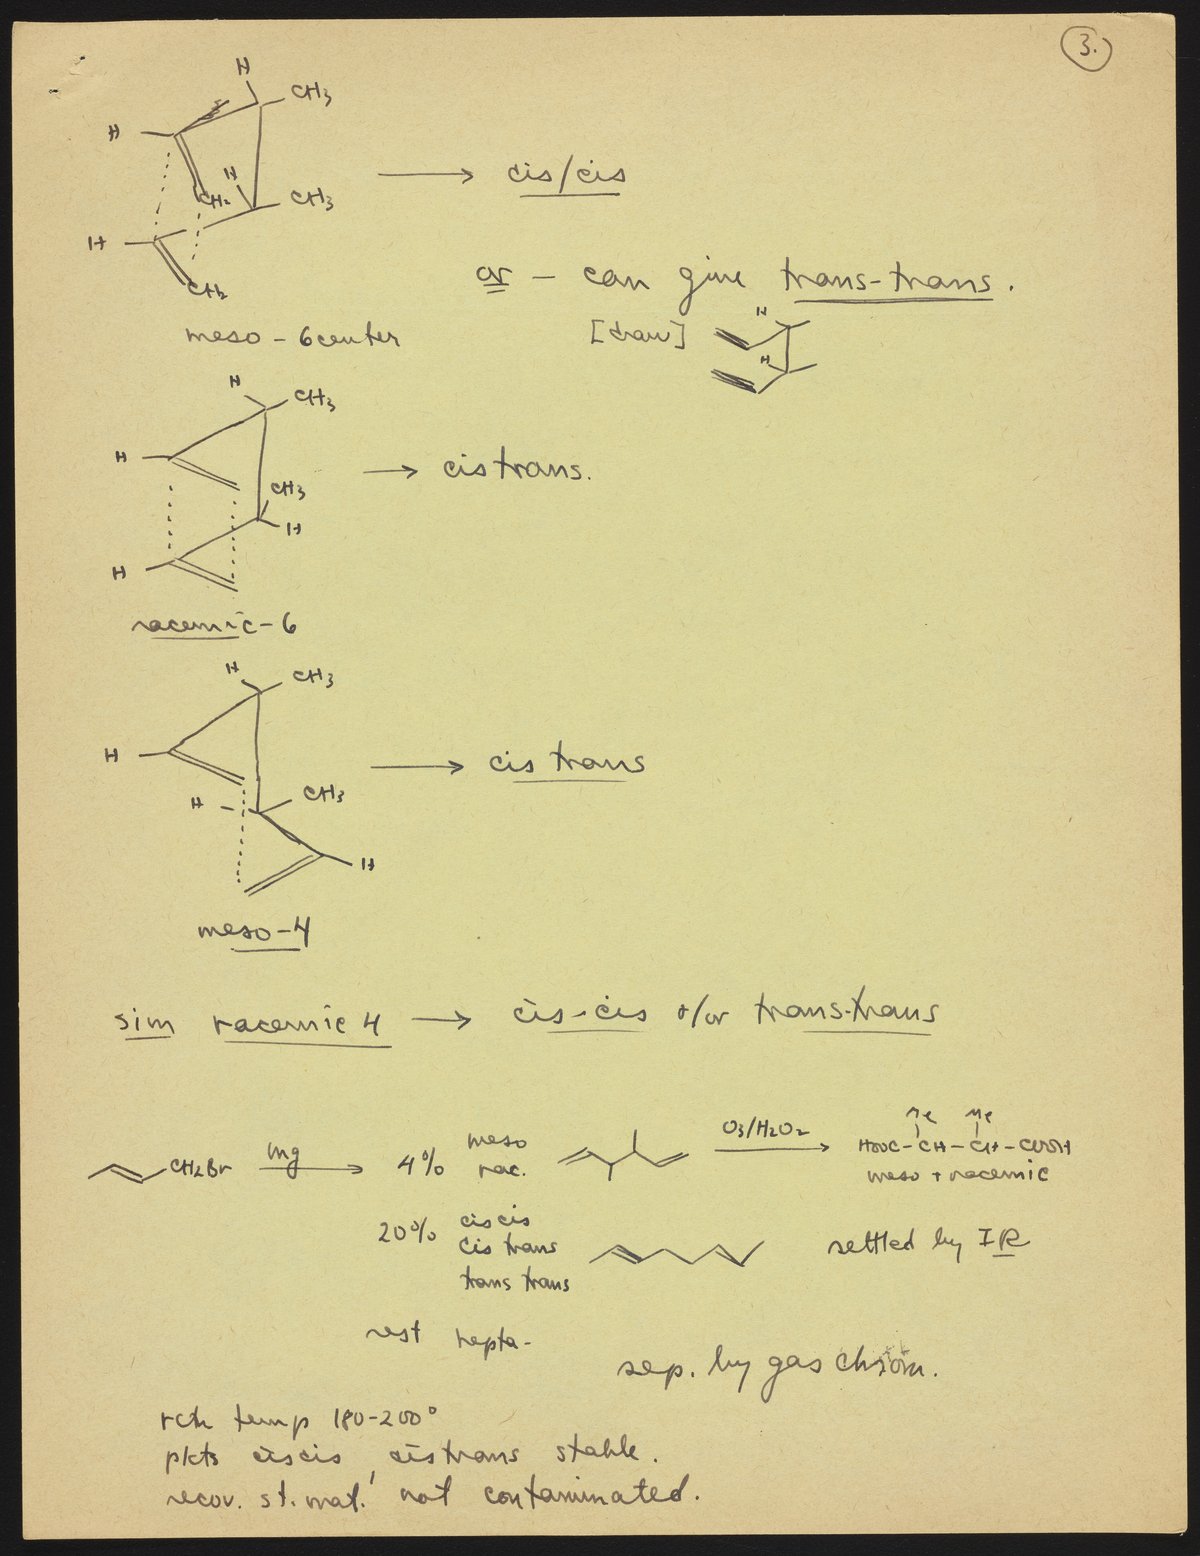 3.
H
CH3
H
H
CH2
CH3
→ cis/cis
H
CH2
or – can give trans-trans.
meso – 6center
[draw]
H
H
H
CH3
H
→ cis trans.
CH3
H
H
racemic – 6
H
CH3
H
→ cis trans
H
CH3
H
meso – 4
sim racemic 4 → cis-cis &/or trans-trans
CH2Br
Mg
4%
meso
rac.
O3/H2O2
Me Me
HOOC-CH-CH-COOH
meso + racemic
20%
cis cis
cis trans
trans trans
settled by IR
rest hepta-
sep. by gas chrom.
rctn temp 180-200°
pkts cis cis, cis trans stable.
recov. st. mat. not contaminated.